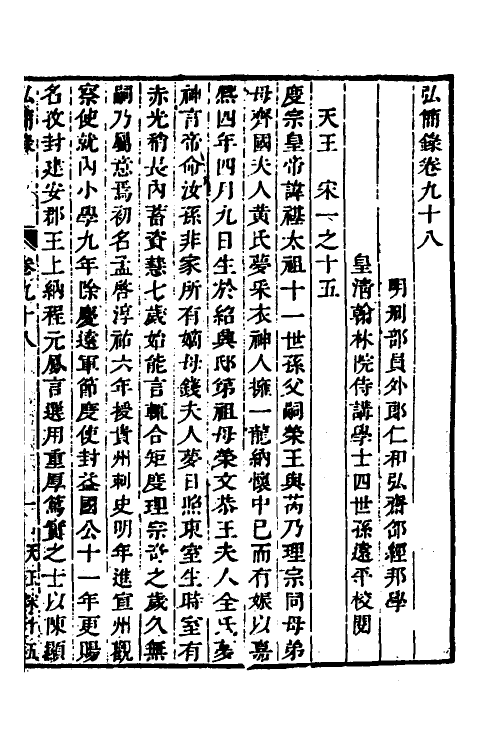 弘簡錄卷九十八
明刑部員外郎仁和弘齋邵經邦學
皇清翰林院侍講學士四世孫遠平校閱
天王　宋一之十五
度宗皇帝諱禥太祖十一世孫父嗣榮王與芮乃理宗同母弟
母齊國夫人黃氏夢采衣神人擁一龍納懷中已而有娠以嘉
熙四年四月九日生於紹興邸第祖母榮文恭王夫人全氏夢
神言帝命汝孫非家所有嫡母錢夫人夢日照東室生時室有
赤光稍長內蓄資慧七歲始能言輒合矩度理宗奇之歲久無
嗣乃屬意焉初名孟啓淳祐六年授貴州刺史明年進宜州觀
察使就內小學九年除慶遠軍節度使封益國公十一年更賜
名孜封建安郡王上納程元鳳言選用重厚篤實之士以陳顯
弘簡錄　卷九十八　一　天王宋十五